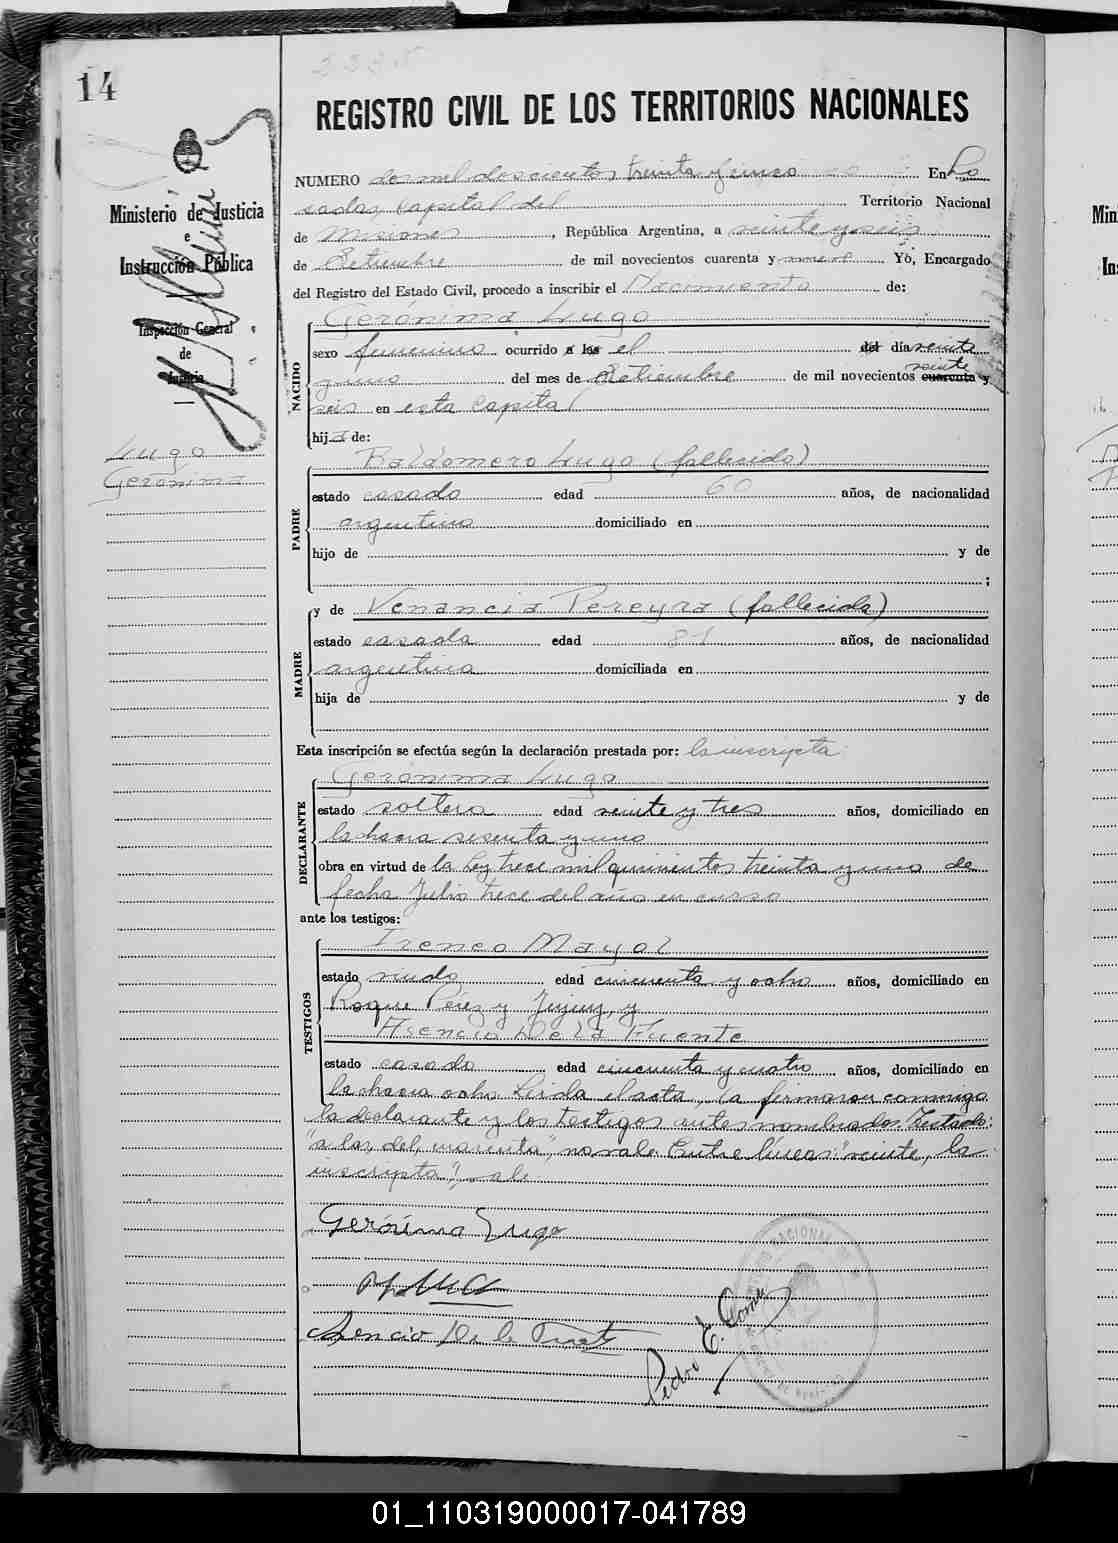 14
2235
REGISTRO CIVIL DE LOS TERRITORIOS NACIONALES
Ministerio de Justicia
e
Instrucción Pública
Inspección General
de
Justicia
Lugo
Gerónima
NUMERO dos mil doscientos treinta y cinco En Po
sadas, Capital del Territorio Nacional
de Misiones, República Argentina, a veinte y seis
de Setiembre de mil novecientos cuarenta y nueve Yó, Encargado
del Registro del Estado Civil, procedo a inscribir el Nacimiento de:
NACIDO
Gerónima Lugo
sexo femenino ocurrido a las el del día veinte
y uno del mes de Setiembre de mil novecientos veinte cuarenta y
seis en esta Capital
hija de:
PADRE
Baldomero Lugo (fallecido)
estado casado edad 60 años, de nacionalidad
argentino domiciliado en
hijo de y de
;
MADRE
y de Venancia Pereyra (fallecida)
estado casada edad 81 años, de nacionalidad
argentina domiciliada en
hija de y de
Esta inscripción se efectúa según la declaración prestada por: la inscripta
DECLARANTE
Gerónima Lugo
estado soltera edad veinte y tres años, domiciliado en
la chacra sesenta y uno
obra en virtud de la Ley trece mil quinientos treinta y uno de
fecha Julio trece del año en curso
ante los testigos:
TESTIGOS
Ireneo Mayol
estado viudo edad cincuenta y ocho años, domiciliado en
Roque Pérez y Jujuy, y
Asencio De la Fuente
estado casado edad cincuenta y cuatro años, domiciliado en
la chacra ocho. Leida el acta, la firmaron conmigo
la declarante y los testigos antes nombrados. Testado:
"a las, del, cuarenta", no vale. Entre líneas: "veinte, la
inscripta", vale.
Gerónima Lugo
Asencio De la Fuente
Pedro E.
01_110319000017-041789